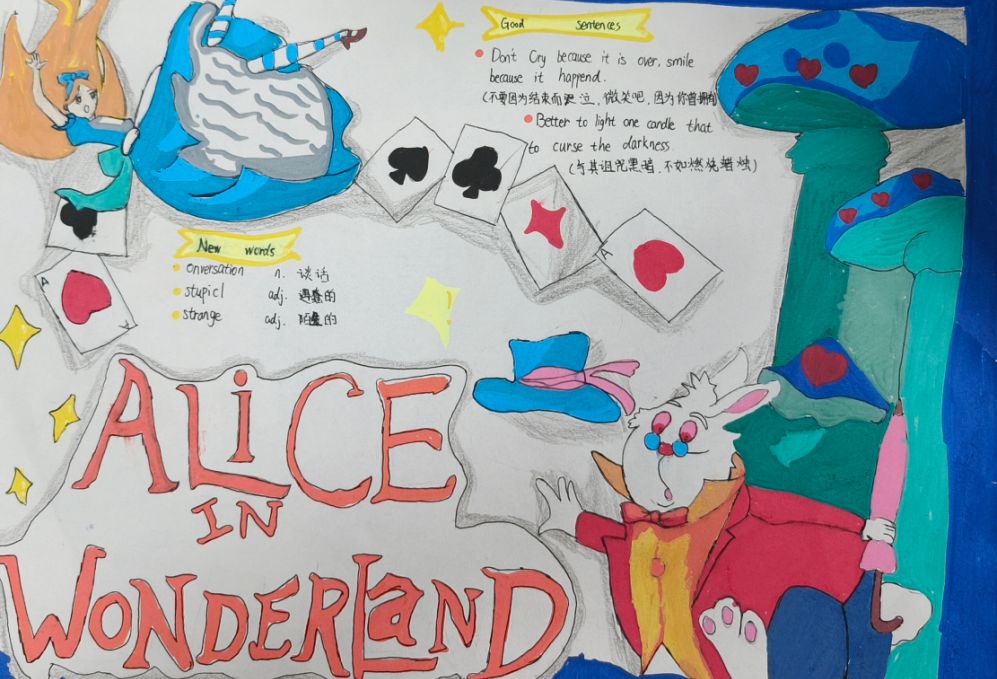 Good sentences
Don't Cry because it is over, smile
because it happend.
(不要因为结束而哭泣，微笑吧，因为你曾拥有)
Better to light one candle that
to curse the darkness.
(与其诅咒黑暗，不如燃烧蜡烛)
New words
onversation n. 谈话
stupid adj. 愚蠢的
strange adj. 陌生的
A
A
A
ALiCE
IN
WONDERLaND